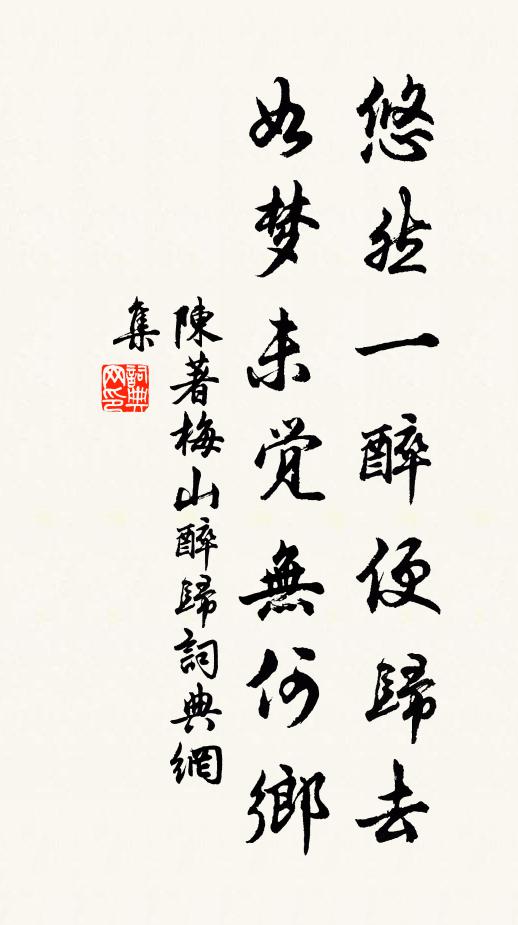 悠然一醉便歸去
如梦未觉無何鄉
陳著梅山醉歸詞典網
集
詞典
网印